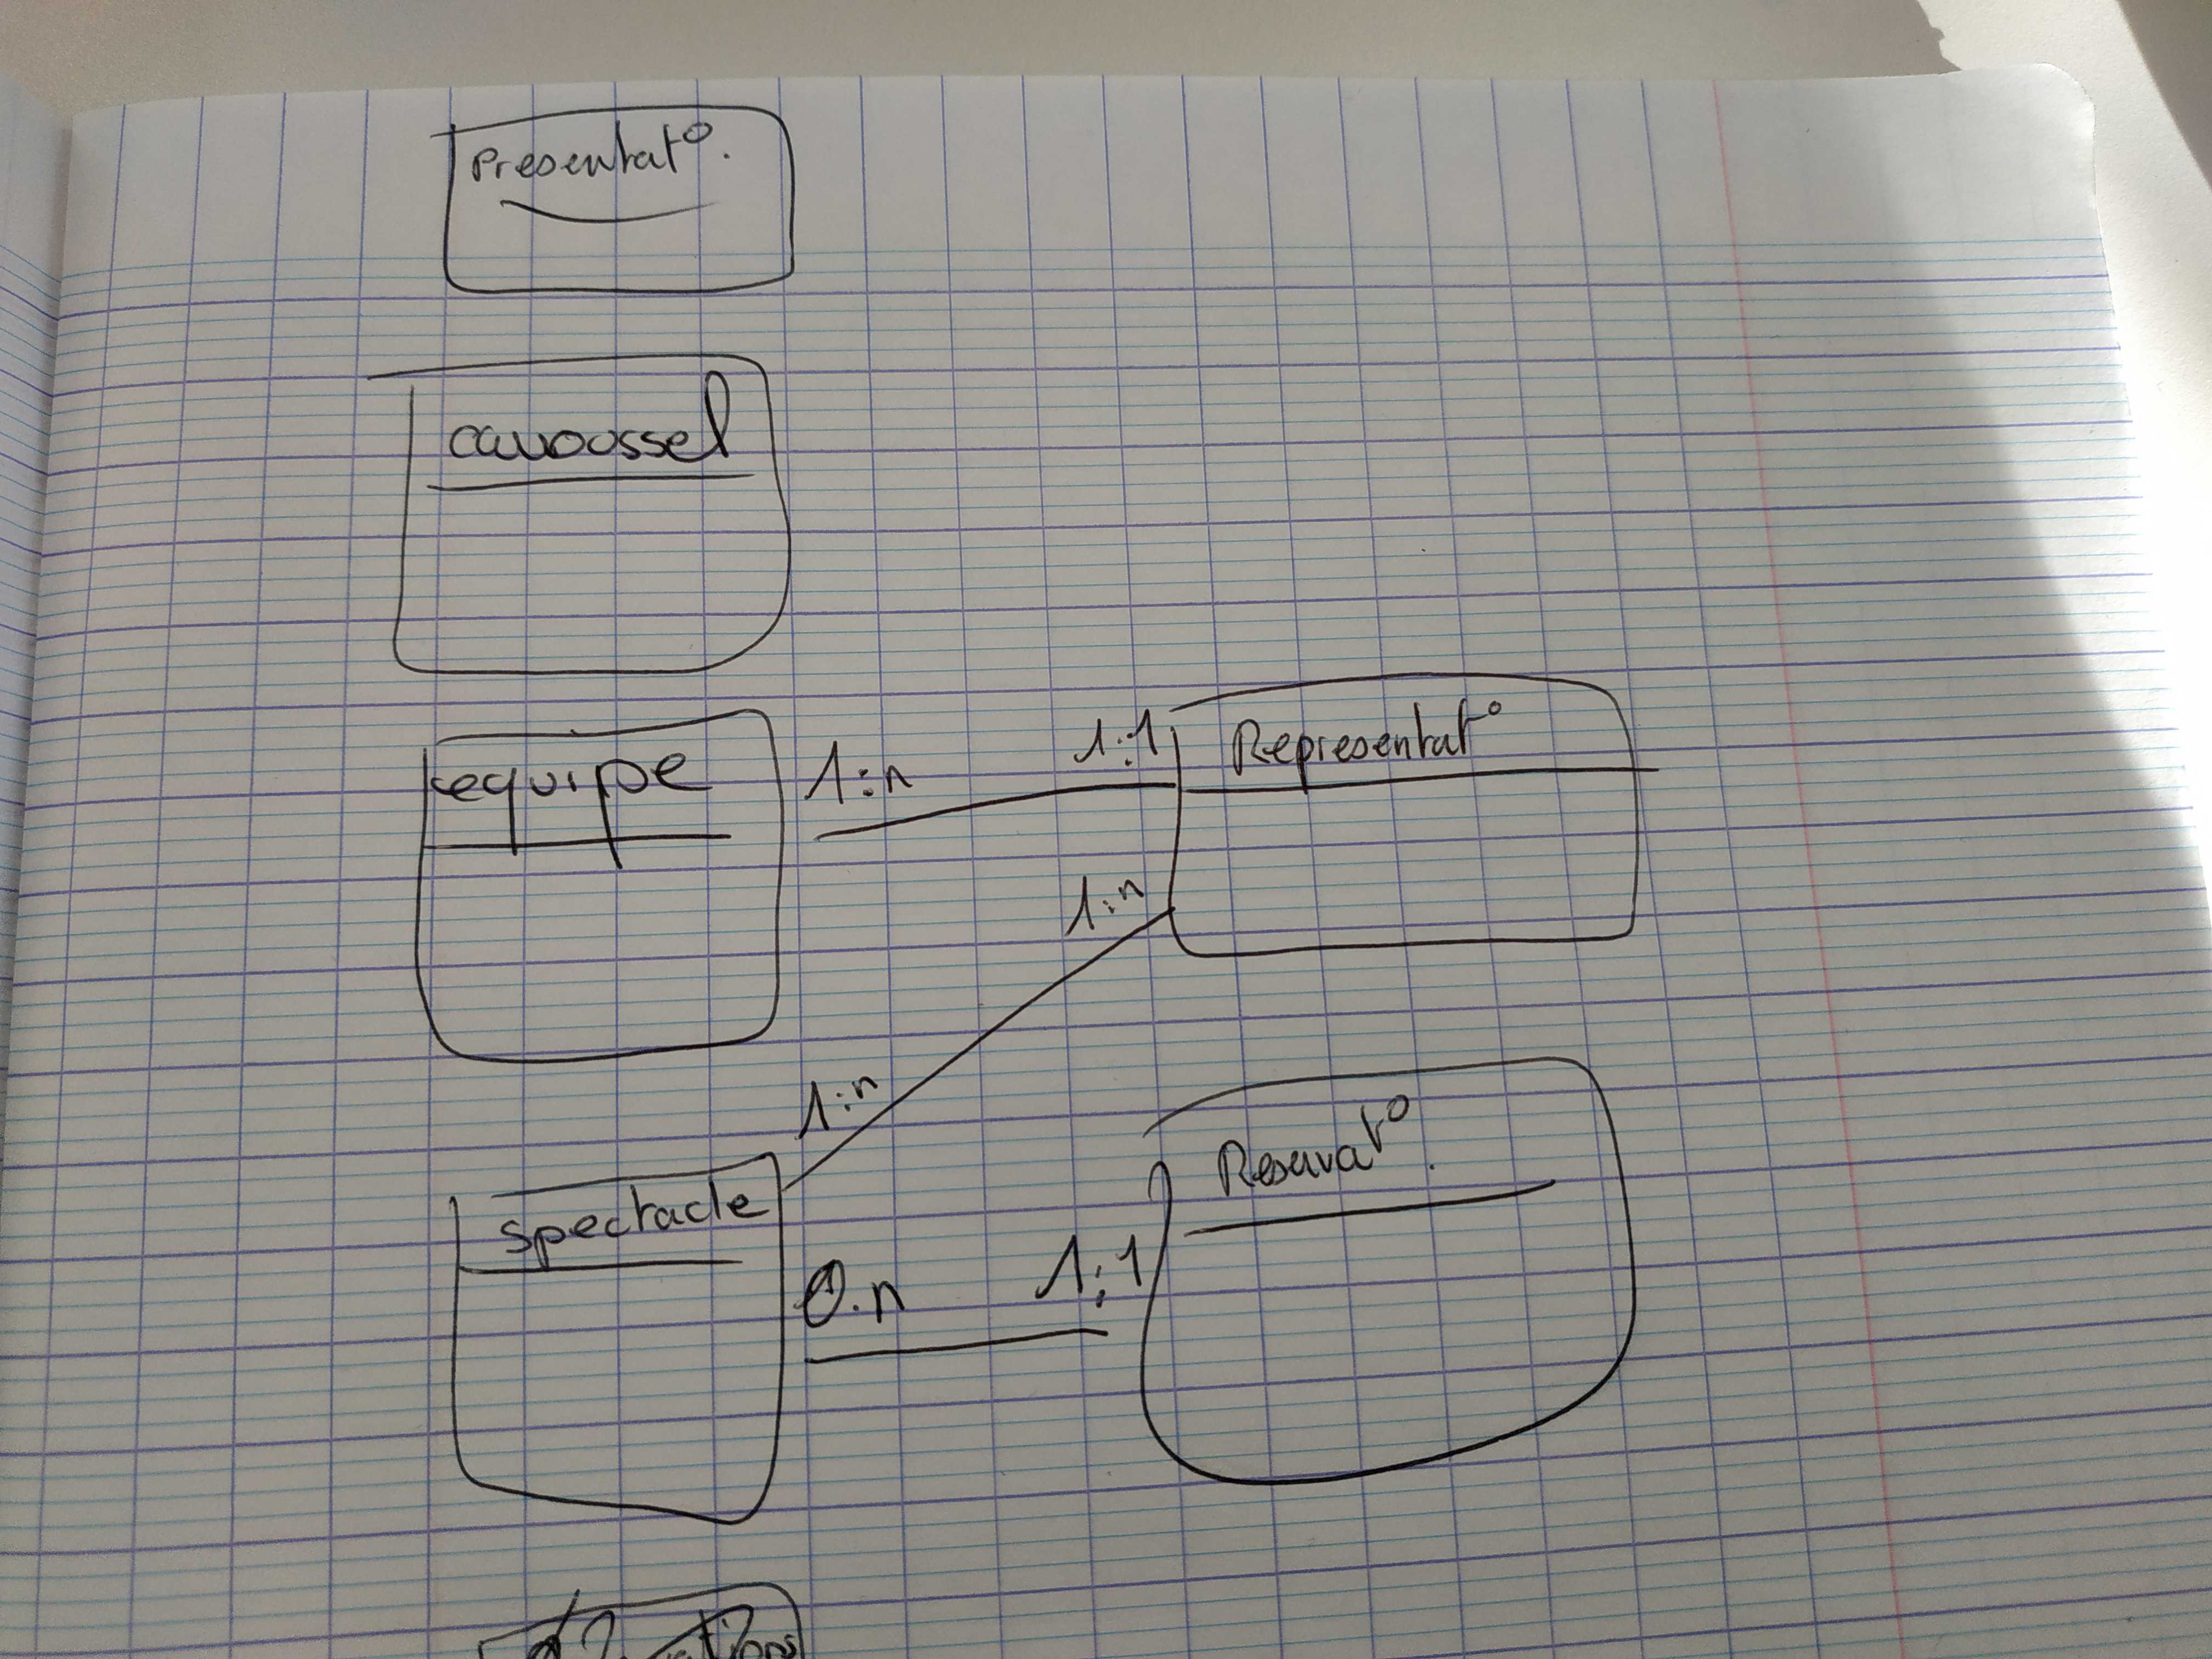 Presentat°.
caroussel
equipe
1:n
1:1
Representat°
1:n
1:n
spectacle
Reservat°.
0.n
1:1